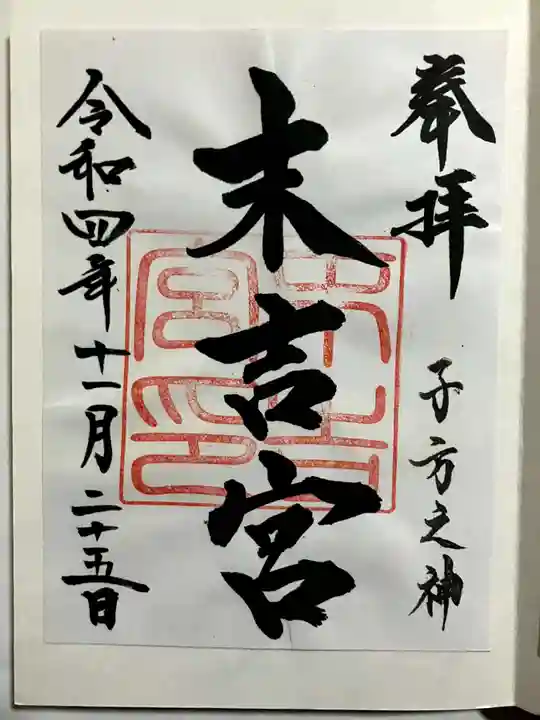 奉拝
子方之神
末吉宮
令和四年十一月二十五日